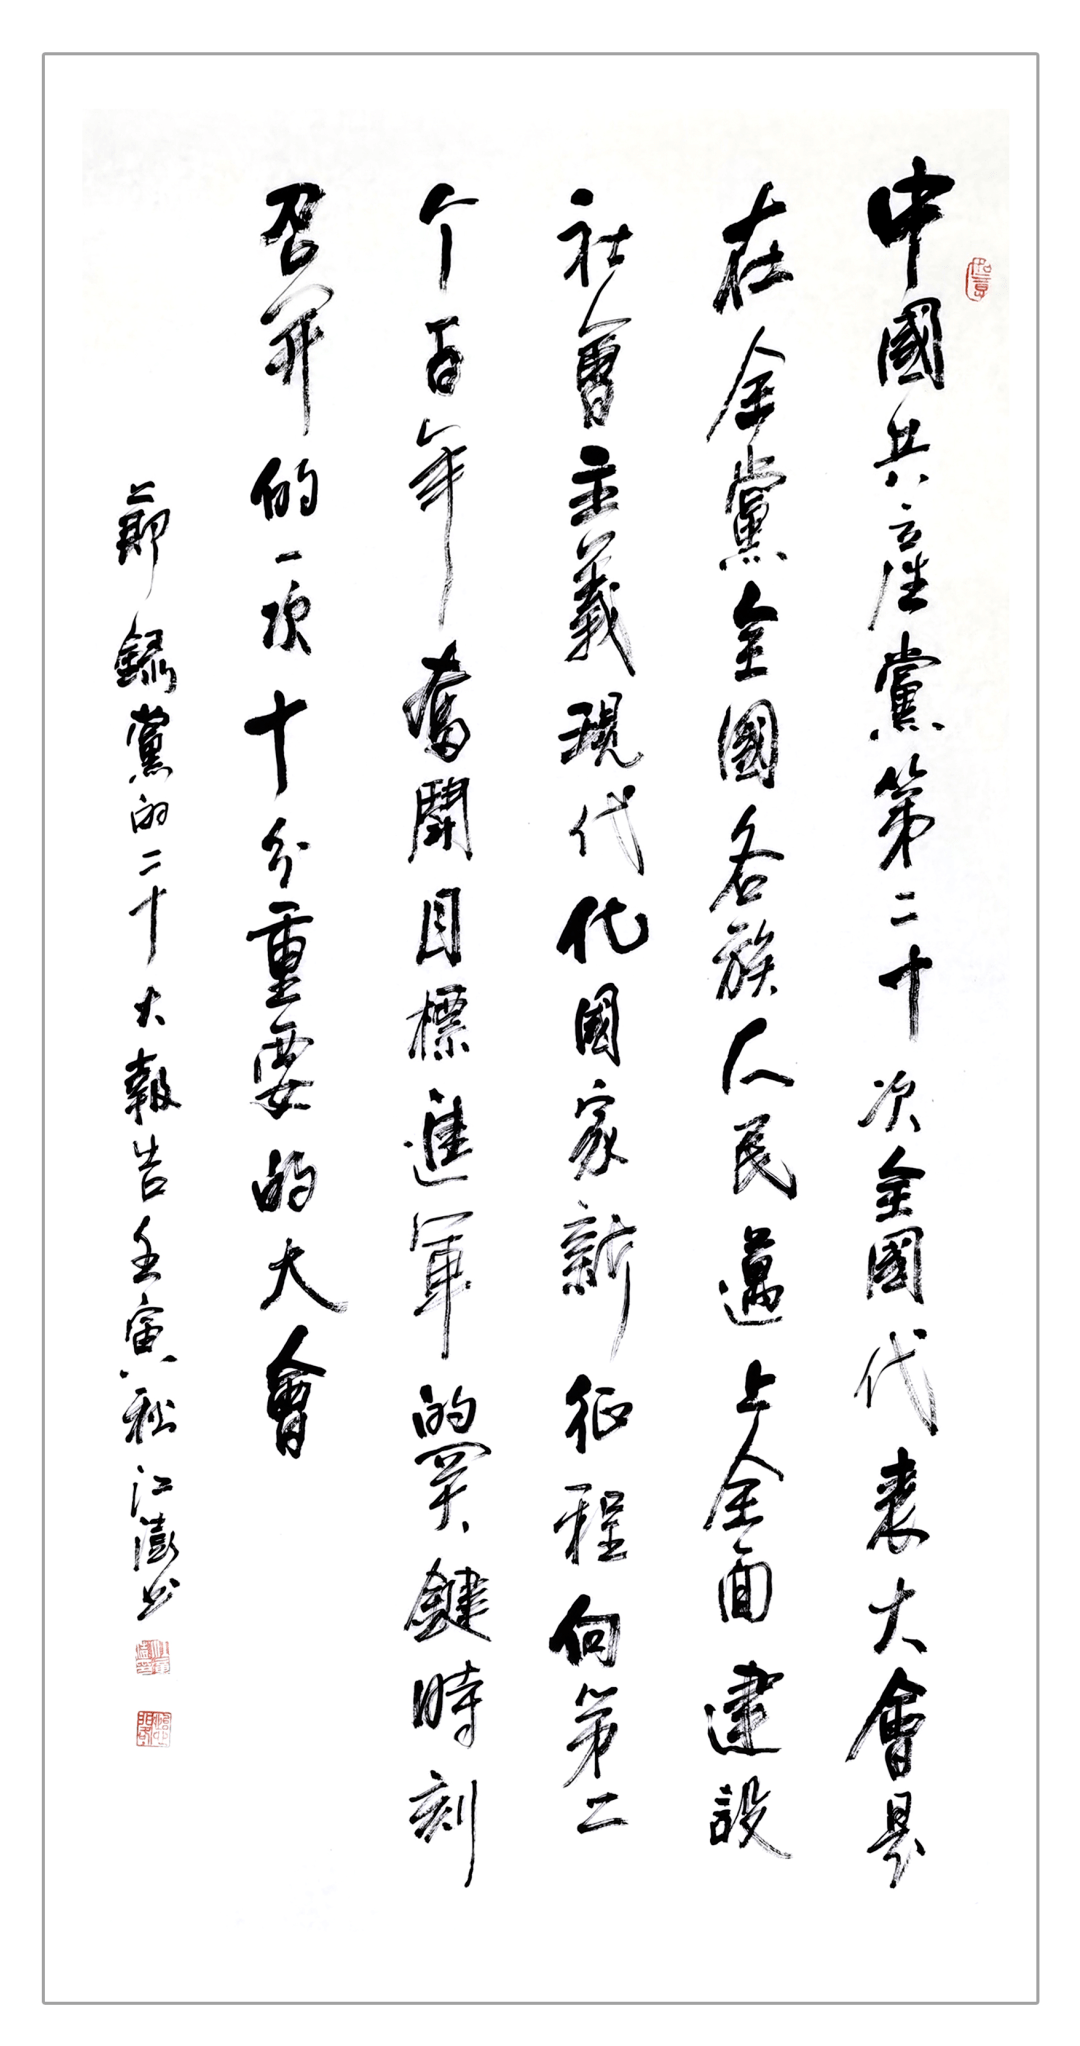 中國共產黨第二十次全國代表大會是
在全黨全國各族人民邁上全面建設
社會主義現代化國家新征程向第二
个百年奮鬪目標進軍的關鍵時刻
召開的一次十分重要的大會
節錄黨的二十大報告壬寅秋江澎書